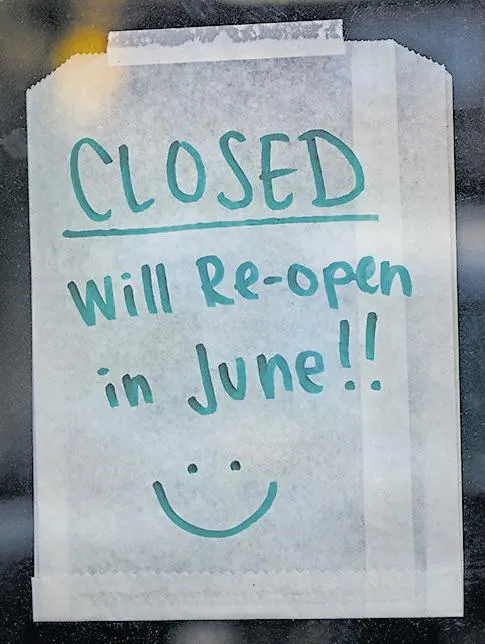 CLOSED
Will Re-open
in June!!